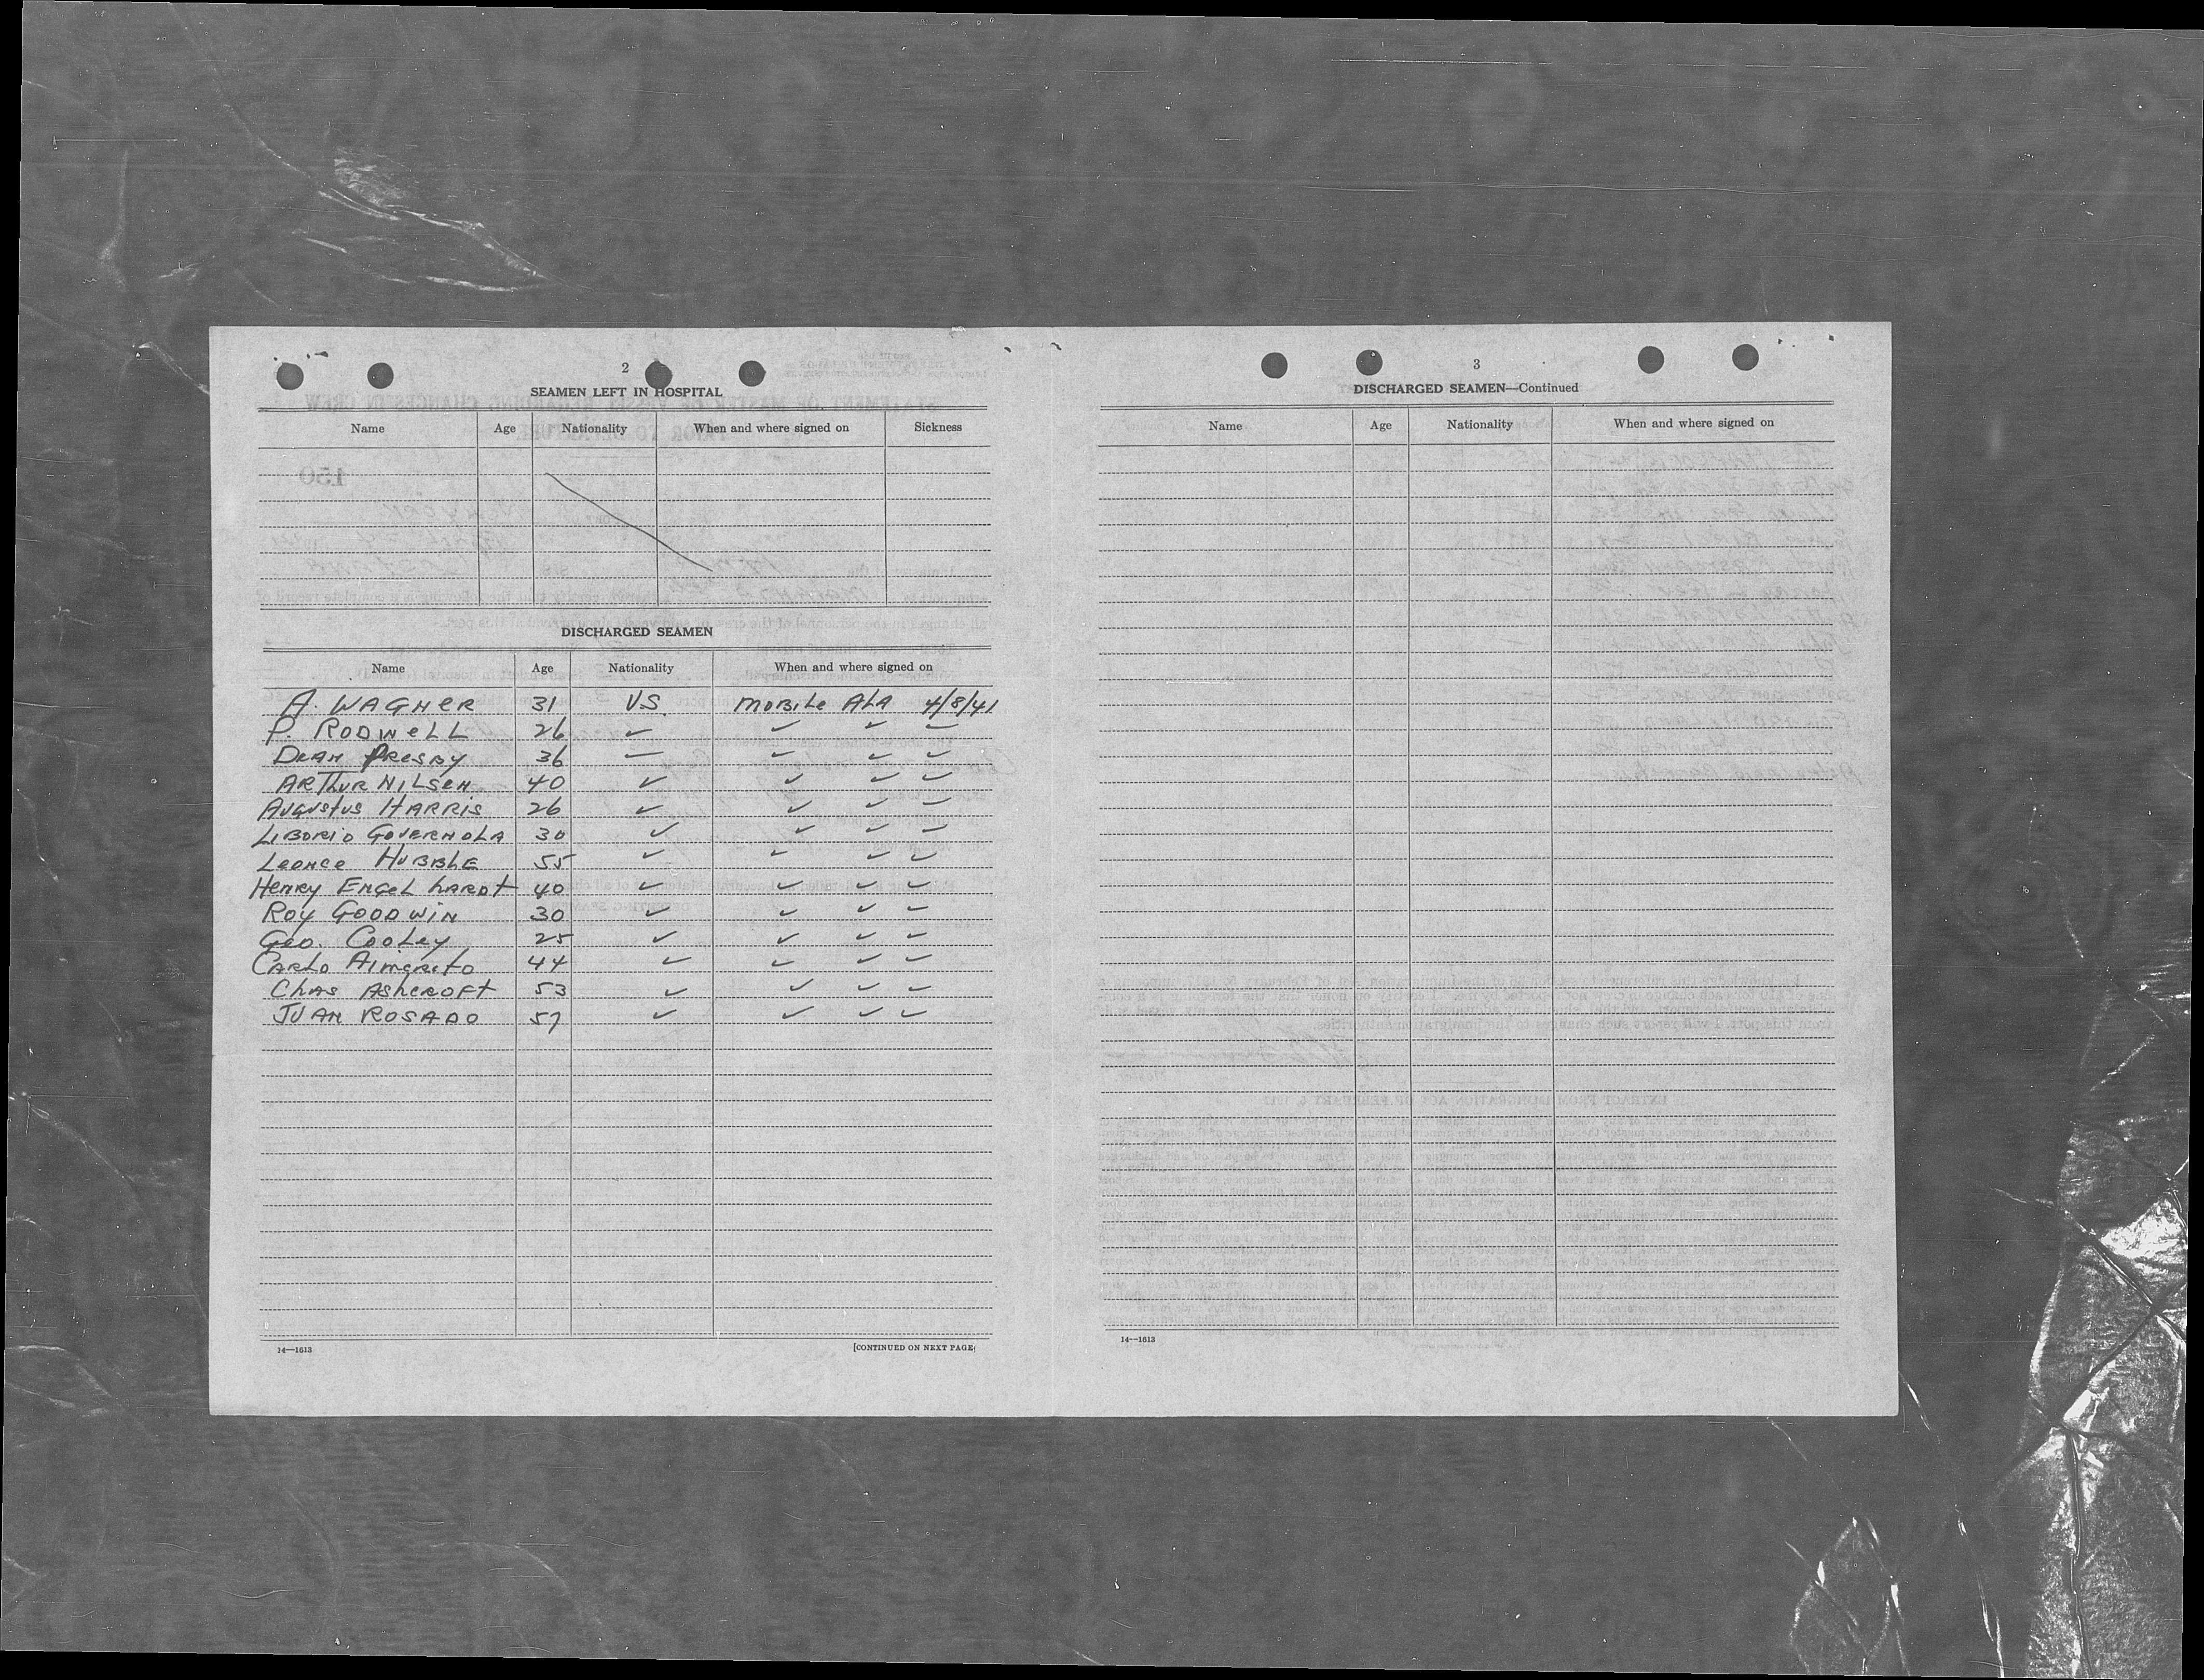 2
SEAMEN LEFT IN HOSPITAL
Name Age Nationality When and where signed on Sickness
DISCHARGED SEAMEN
Name Age Nationality When and where signed on
A. WAGNER 31 US MOBILE ALA 4/8/41
P. RODWELL 26 ✓ ✓ ✓ ✓
DEAN PRESBY 36 — ✓ ✓ ✓
ARTHUR NILSEN 40 ✓ ✓ ✓ ✓
AUGUSTUS HARRIS 26 ✓ ✓ ✓ ✓
LIBORIO GOVERNOLA 30 ✓ ✓ ✓ ✓
LEONCE HUBBLE 55 ✓ ✓ ✓ ✓
HENRY ENGELHARDT 40 ✓ ✓ ✓ ✓
ROY GOODWIN 30 ✓ ✓ ✓ ✓
GEO. COOLEY 25 ✓ ✓ ✓ ✓
CARLO 44 ✓ ✓ ✓ ✓
CHAS ASHCROFT 53 ✓ ✓ ✓ ✓
JUAN ROSADO 57 ✓ ✓ ✓ ✓
14—1613 [CONTINUED ON NEXT PAGE]
3
DISCHARGED SEAMEN—Continued
Name Age Nationality When and where signed on
14—1613